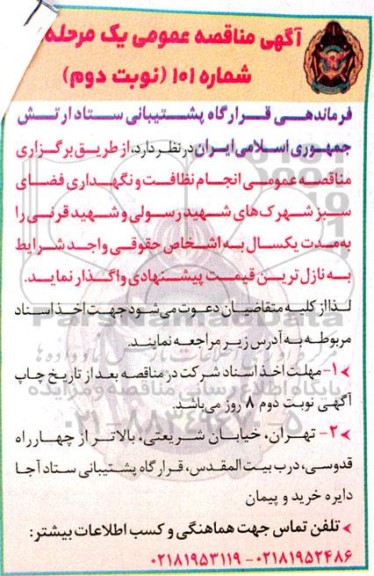 آگهی مناقصه عمومی یک مرحله
شماره ۱۰۱ (نوبت دوم)
فرماندهی قرارگاه پشتیبانی ستاد ارتش
جمهوری اسلامی ایران در نظر دارد، از طریق برگزاری
مناقصه عمومی انجام نظافت و نگهداری فضای
سبز شهرک‌های شهید رسولی و شهید قرنی را
به مدت یکسال به اشخاص حقوقی واجد شرایط
به نازل ترین قیمت پیشنهادی واگذار نماید.
لذا از کلیه متقاضیان دعوت می‌شود جهت اخذ اسناد
مربوطه به آدرس زیر مراجعه نمایند.
۱- مهلت اخذ اسناد شرکت در مناقصه بعد از تاریخ چاپ
آگهی نوبت دوم ۸ روز می‌باشد.
۲- تهران، خیابان شریعتی، بالاتر از چهارراه
قدوسی، درب بیت المقدس، قرارگاه پشتیبانی ستاد آجا
دایره خرید و پیمان
تلفن تماس جهت هماهنگی و کسب اطلاعات بیشتر:
۰۲۱۸۱۹۵۲۴۸۶ - ۰۲۱۸۱۹۵۳۱۱۹
ParsNamadData
پایگاه اطلاع رسانی مناقصه و مزایده